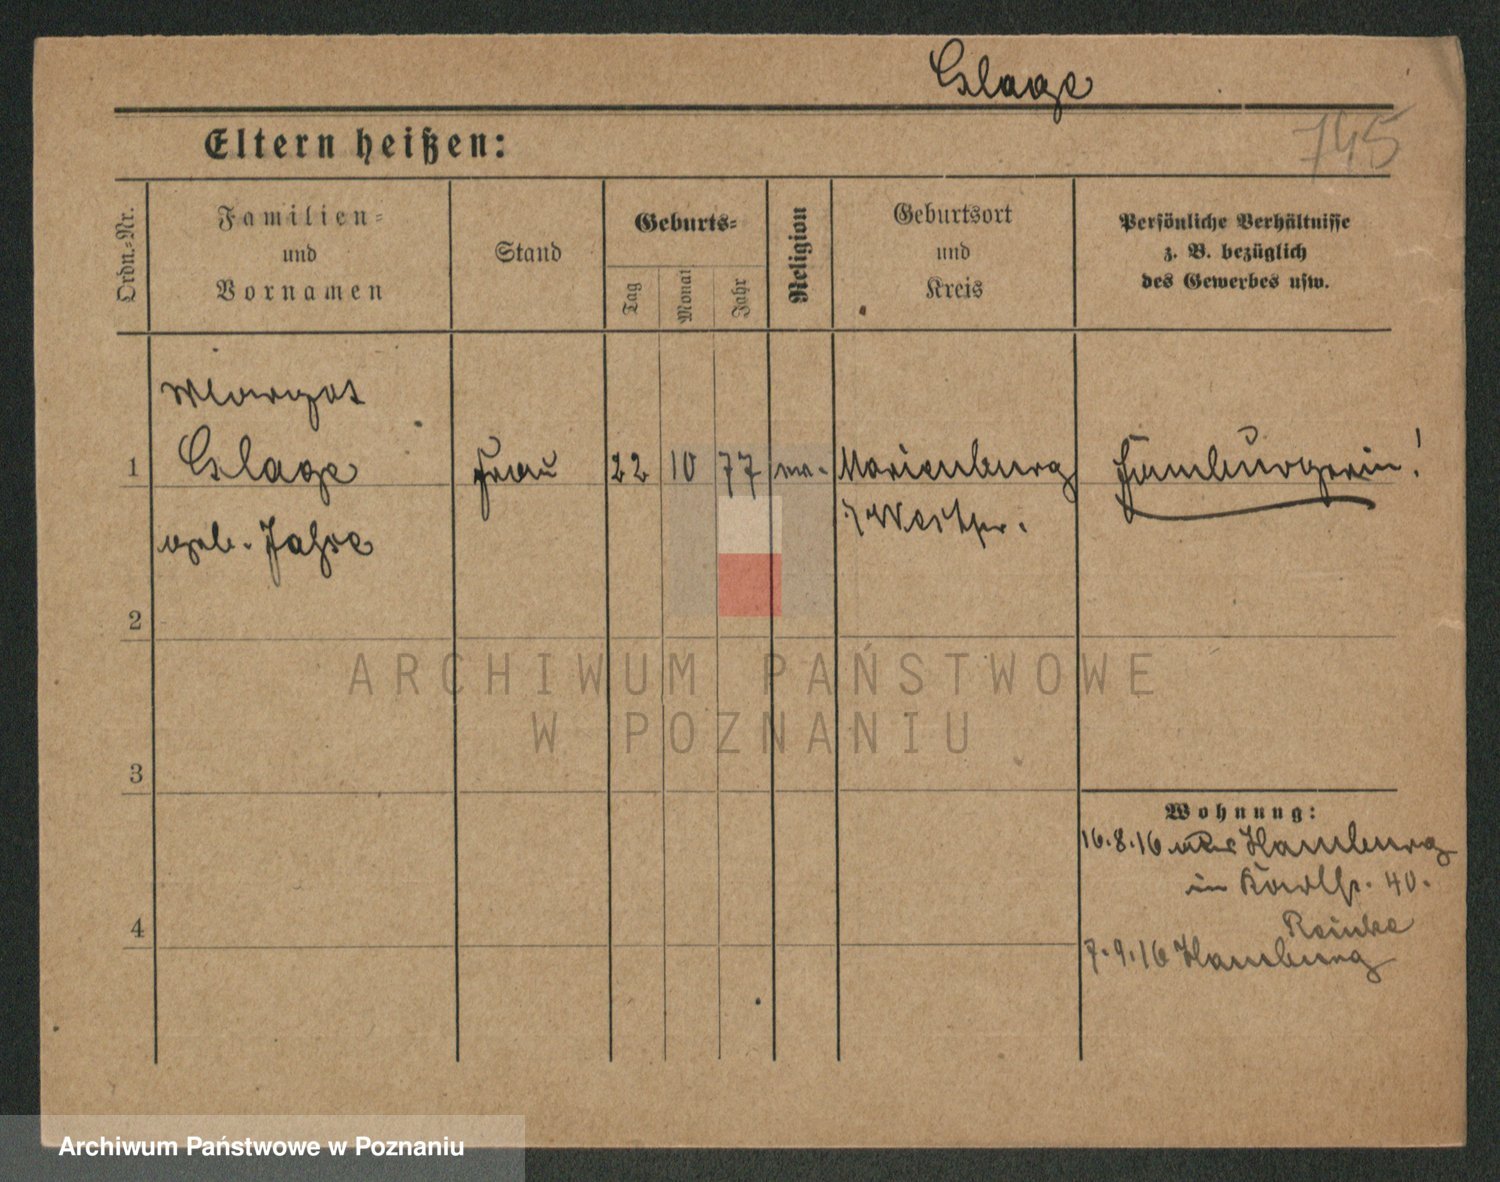 Glage
745
Eltern heißen:
Ordn.-Nr.
Familien-
und
Vornamen
Stand
Geburts-
Tag
Monat
Jahr
Religion
Geburtsort
und
Kreis
Persönliche Verhältnisse
z. B. bezüglich
des Gewerbes usw.
Margot
1 Glage Frau 22 10 77 ev. Marienburg Hamburgerin!
geb. Jahre
i/Westpr.
2
3
4
Wohnung:
16.8.16 Hamburg
in Karlstr. 40.
Reinke
7.9.16 Hamburg
ARCHIWUM PAŃSTWOWE
W POZNANIU
Archiwum Państwowe w Poznaniu